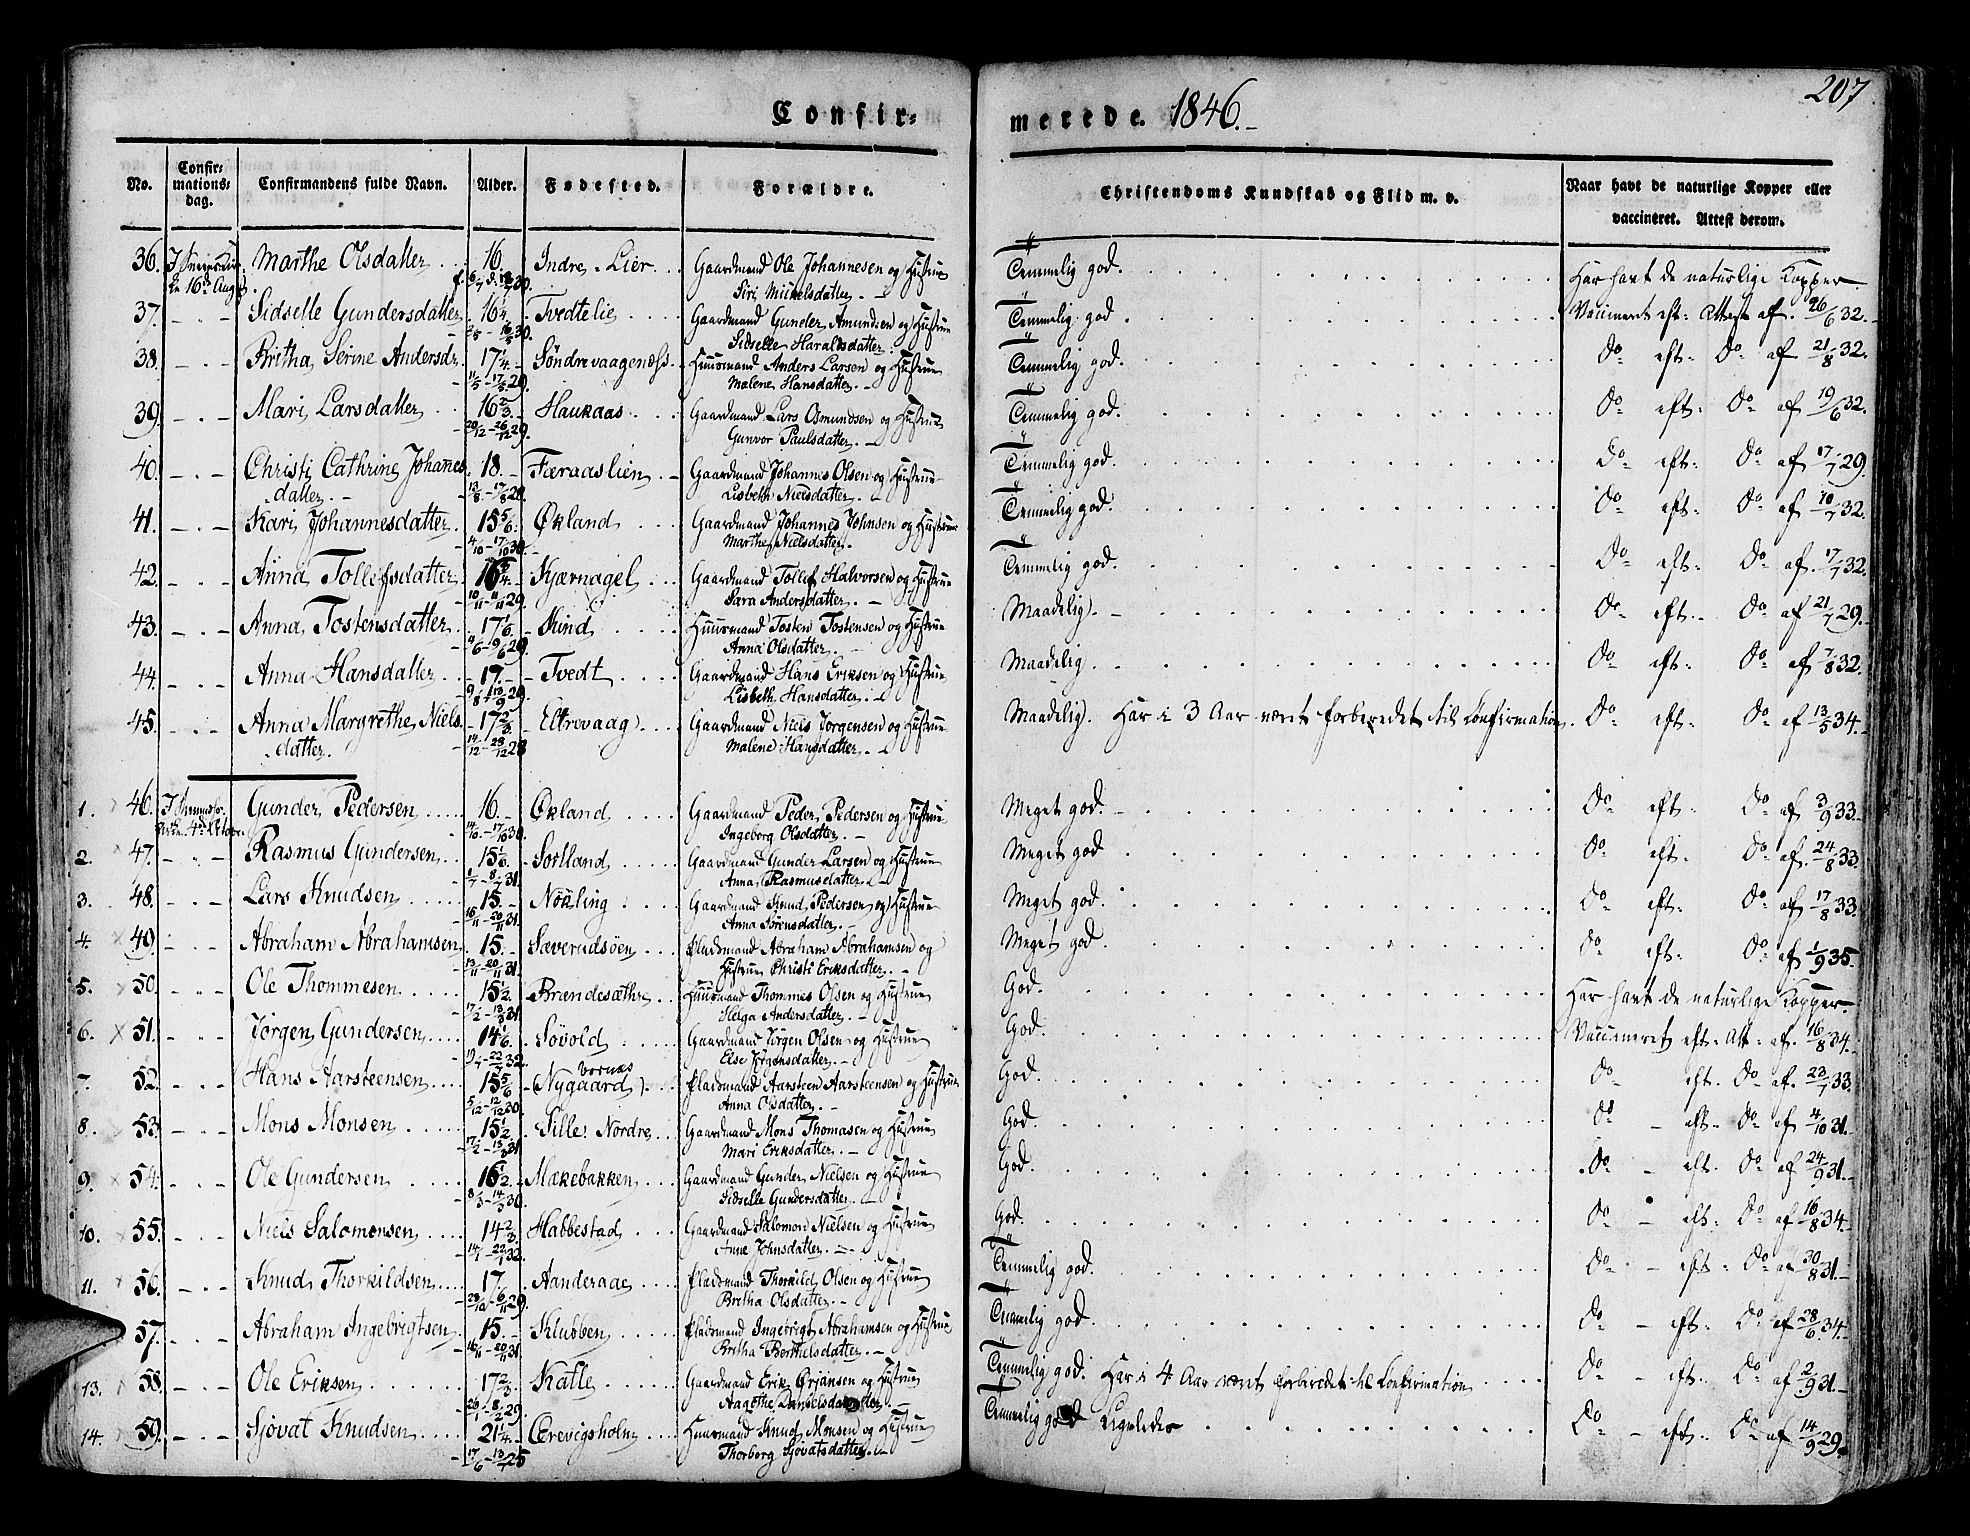 207
Confir- merede. 1846.
No. Confirmations-dag. Confirmandens fulde Navn. Alder. Fødested. Forældre. Christendoms Kundskab og Flid m. v. Naar havt de naturlige Kopper eller vaccineret. Attest derom.
36. Marthe Olsdatter 16 Indre Lier Gaardmand Ole Johannesen og Hustrue Temmelig god. Har havt de naturlige Kopper
16de Aug. Siri Mickelsdatter
37. Sidselle Gundersdatter 16 1/4 Tvedtelie Gaardmand Gunder Amundsen og Hustrue Temmelig god Vaccineret eft: Attest af 26/6 32.
Sidselle Haraltsdatter
38. Britha Serine Andersdr 17 1/4 Søndrevaagenæss Huusmand Anders Larsen og Hustrue Temmelig god. Do eft. Do af 21/8 32.
Malene Hansdatter
39. Mari Larsdatter 16 2/3 Haukaas Gaardmand Lars Osmundsen og Hustrue Temmelig god. Do eft: Do af 19/6 32.
Gunvor Paulsdatter
40. Christi Cathrine Johannes 18 Færaaslien Gaardmand Johannes Olsen og Hustrue Temmelig god. Do eft: Do af 17/7 29.
datter Lisbeth Nielsdatter
41. Kari Johannesdatter 15 5/6 Økland Gaardmand Johannes Johnsen og Hustrue Temmelig god. Do eft: Do af 10/7 32.
Marthe Nielsdatter
42. Anna Tollefsdatter 16 Kjærnagel Gaardmand Tollef Halvorsen og Hustrue Temmelig god. Do eft: Do af 17/7 32.
Sara Andersdatter
43. Anna Tostensdatter 17 1/6 Kind Huusmand Tosten Tostensen og Hustrue Maadelig. Do eft. Do af 21/7 29.
Anna Olsdatter
44. Anna Hansdatter 17 Tvedt Gaardmand Hans Eriksen og Hustrue Maadelig. Do eft: Do af 7/8 32.
Lisbeth Hansdatter
45. Anna Margrethe Niels 17 2/3 Eltrovaag Gaardmand Niels Jørgensen og Hustrue Maadelig. Har i 3 Aar været forberedet til Confirmation. Do eft: Do af 13/5 34.
datter. Malene Hansdatter
1. 46. Gunder Pedersen 16 Økland Gaardmand Peder Pedersen og Hustrue Meget god Do eft: Do af 3/9 33.
Ingeborg Olsdatter
2. 47. Rasmus Gundersen 15 1/6 Sortland Gaardmand Gunder Larsen og Hustrue Meget god Do eft: Do af 24/8 33.
Anna Rasmusdatter
3. 48. Lars Knudsen 15 Nøkling Gaardmand Knud Pedersen og Hustrue Meget god. Do eft: Do af 17/8 33.
Anna Sørensdatter
4. 49. Abraham Abrahamsen 15 Sæverudsöen Pladsmand Abraham Abrahamsen og Meget god Do eft: Do af 1/9 35.
Hustrue Christi Eriksdatter
5. 50. Ole Thommesen 15 1/2 Brændesæthre Huusmand Thommes Olsen og Hustrue God. Har havt de naturlige Kopper.
Helga Andersdatter
6. 51. Jørgen Gundersen 14 1/6 Søvold Gaardmand Jörgen Olsen og Hustrue God. Vaccineret eft: Att: af 16/8 34.
Else Jørgensdatter
7. 52. Hans Aarsteensen 15 5/6 Nygaard Pladsmand Aarsteen Aarsteensen og Hustrue God Do eft. Do af. 23/7 33.
Anna Olsdatter
8. 53. Mons Monsen 15 1/2 Sille Nordre Gaardmand Mons Thomasen og Hustrue God. Do eft: Do af 4/10 31.
Mari Eriksdatter
9. 54. Ole Gundersen 16 1/2 Mækebakken Gaardmand Gunder Nielsen og Hustrue God. Do eft. Do af 24/9 31.
Sidselle Gundersdatter
10. 55. Niels Salomonsen 14 2/3 Habbestad Gaardmand Salomon Nielsen og Hustrue God. Do eft: Do af 16/8 34.
Anne Johnsdatter
11. 56. Knud Thorkildsen 17 Aanderaae Pladsmand Thorkild Olsen og Hustrue Temmelig god. Do eft: Do af 30/8 31.
Britha Olsdatter
57. Abraham Ingebrigtsen 15 Klubben Pladsmand Ingebrigt Abrahamsen og Hustrue Temmelig god Do eft: Do af 28/6 34.
Britha Berthelsdatter
13. 58. Ole Eriksen 17 2/3 Katle Gaardmand Erik Ørjansen og Hustrue Temmelig god. Har i 4 Aar været forberedet til Confirmation Do eft: Do af 2/9 31.
Aagethe Danielsdatter
14. 59. Sjovat Knudsen 21 1/4 Crevigsholm Huusmand Knud Monsen og Hustrue Temmelig god Ligeledes Do eft: Do af 14/9 29.
Thorberg Sjovatsdatter